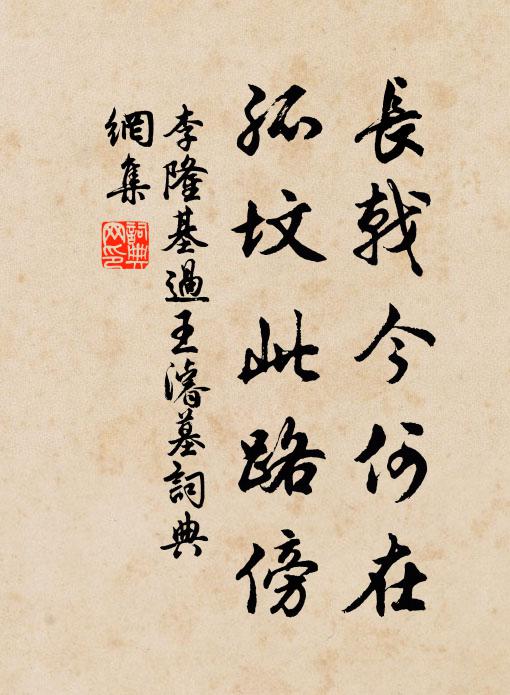 長戟今何在
孤坟此路傍
李隆基過王濬墓詞典
網集
詞典网印